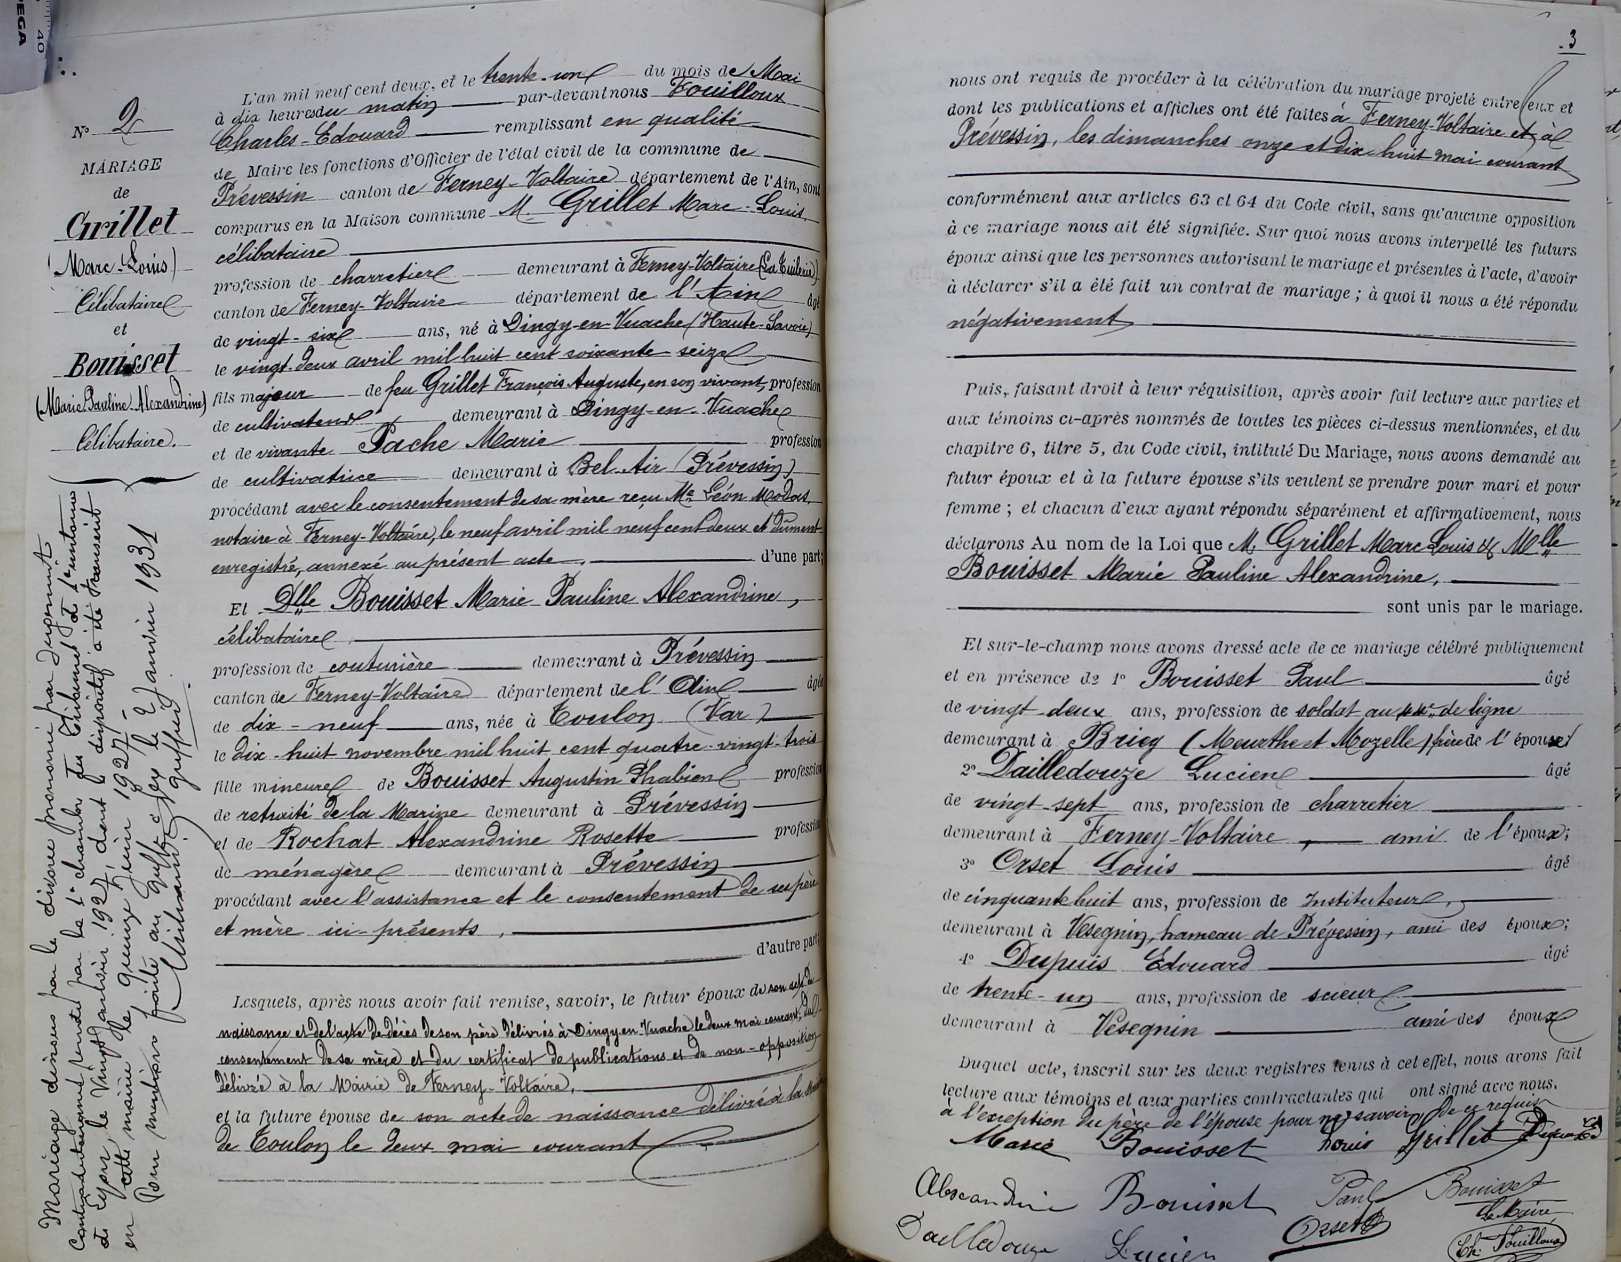 N° 2
MARIAGE
de
Grillet
(Marc-Louis)
Célibataire
et
Bouisset
(Marie Pauline Alexandrine)
Célibataire.
Mariage dissous par le divorce prononcé par jugement
contradictoirement rendu par la 1e chambre du Tribunal de
de Lyon, le vingt janvier 1927, dont le dispositif a été transcrit
en cette mairie le quinze juin 1927.
Pour mention faite au greffe de Gex le 2 janvier 1931
greffier
L'an mil neuf cent deux, et le trente-un du mois de Mai
à dix heures du matin par-devant nous Fouilloux
Charles-Edouard remplissant en qualité
de Maire les fonctions d'Officier de l'état civil de la commune de
Prévessin canton de Ferney-Voltaire département de l'Ain, sont
comparus en la Maison commune M. Grillet Marc-Louis
célibataire
profession de charretier demeurant à Ferney-Voltaire (La Tuilerie)
canton de Ferney-Voltaire département de l'Ain âgé
de vingt-six ans, né à Dingy-en-Vuache (Haute-Savoie)
le vingt-deux avril mil huit cent soixante seize
fils majeur de feu Grillet François Auguste, en son vivant, profession
de cultivateur demeurant à Dingy-en-Vuache
et de vivante Pache Marie profession
de cultivatrice demeurant à Bel-Air (Prévessin)
procédant avec le consentement de sa mère reçu Me Léon Modas
notaire à Ferney-Voltaire, le neuf avril mil neuf cent deux et dûment
enregistré, annexé au présent acte. d'une part;
Et Dlle Bouisset Marie Pauline Alexandrine,
célibataire
profession de couturière demeurant à Prévessin
canton de Ferney-Voltaire département de l'Ain âgée
de dix-neuf ans, née à Toulon (Var)
le dix-huit novembre mil huit cent quatre-vingt-trois
fille mineure de Bouisset Augustin Phabien profession
de retraité de la Marine demeurant à Prévessin
et de Rochat Alexandrine Rosette profession
de ménagère demeurant à Prévessin
procédant avec l'assistance et le consentement de ses père
et mère ici-présents,
d'autre part;
Lesquels, après nous avoir fait remise, savoir, le futur époux de son acte de
naissance et de l'acte de décès de son père délivrés à Dingy en Vuache le deux mai courant, du
consentement de sa mère et du certificat de publications et de non-opposition
délivré à la Mairie de Ferney-Voltaire,
et la future épouse de son acte de naissance délivré à la Mairie
de Toulon le deux mai courant
3
nous ont requis de procéder à la célébration du mariage projeté entre eux et
dont les publications et affiches ont été faites à Ferney-Voltaire et à
Prévessin, les dimanches onze et dix huit mai courant
conformément aux articles 63 et 64 du Code civil, sans qu'aucune opposition
à ce mariage nous ait été signifiée. Sur quoi nous avons interpellé les futurs
époux ainsi que les personnes autorisant le mariage et présentes à l'acte, d'avoir
à déclarer s'il a été fait un contrat de mariage; à quoi il nous a été répondu
négativement
Puis, faisant droit à leur réquisition, après avoir fait lecture aux parties et
aux témoins ci-après nommés de toutes les pièces ci-dessus mentionnées, et du
chapitre 6, titre 5, du Code civil, intitulé Du Mariage, nous avons demandé au
futur époux et à la future épouse s'ils veulent se prendre pour mari et pour
femme; et chacun d'eux ayant répondu séparément et affirmativement, nous
déclarons Au nom de la Loi que M. Grillet Marc Louis & Melle
Bouisset Marie Pauline Alexandrine,
sont unis par le mariage.
Et sur-le-champ nous avons dressé acte de ce mariage célébré publiquement
et en présence de 1° Bouisset Paul âgé
de vingt-deux ans, profession de soldat au de ligne
demeurant à Briey (Meurthe et Mozelle) frère de l'épouse;
2° Dailledouze Lucien âgé
de vingt-sept ans, profession de charretier
demeurant à Ferney-Voltaire, ami de l'époux;
3° Orset Louis âgé
de cinquante huit ans, profession de Instituteur,
demeurant à Vésegnin, hameau de Prévessin, ami des époux;
4° Dupuis Édouard âgé
de trente-un ans, profession de scieur
demeurant à Vésegnin ami des époux
Duquel acte, inscrit sur les deux registres tenus à cet effet, nous avons fait
lecture aux témoins et aux parties contractantes qui ont signé avec nous.
à l'exception du père de l'épouse pour ne savoir de ce requis
Marie Bouisset Louis Grillet Dupuis Ed
Alexandrine Bouisset Paul Bouisset
Le Maire
Dailledouze Lucien Orset
Ch. Fouilloux